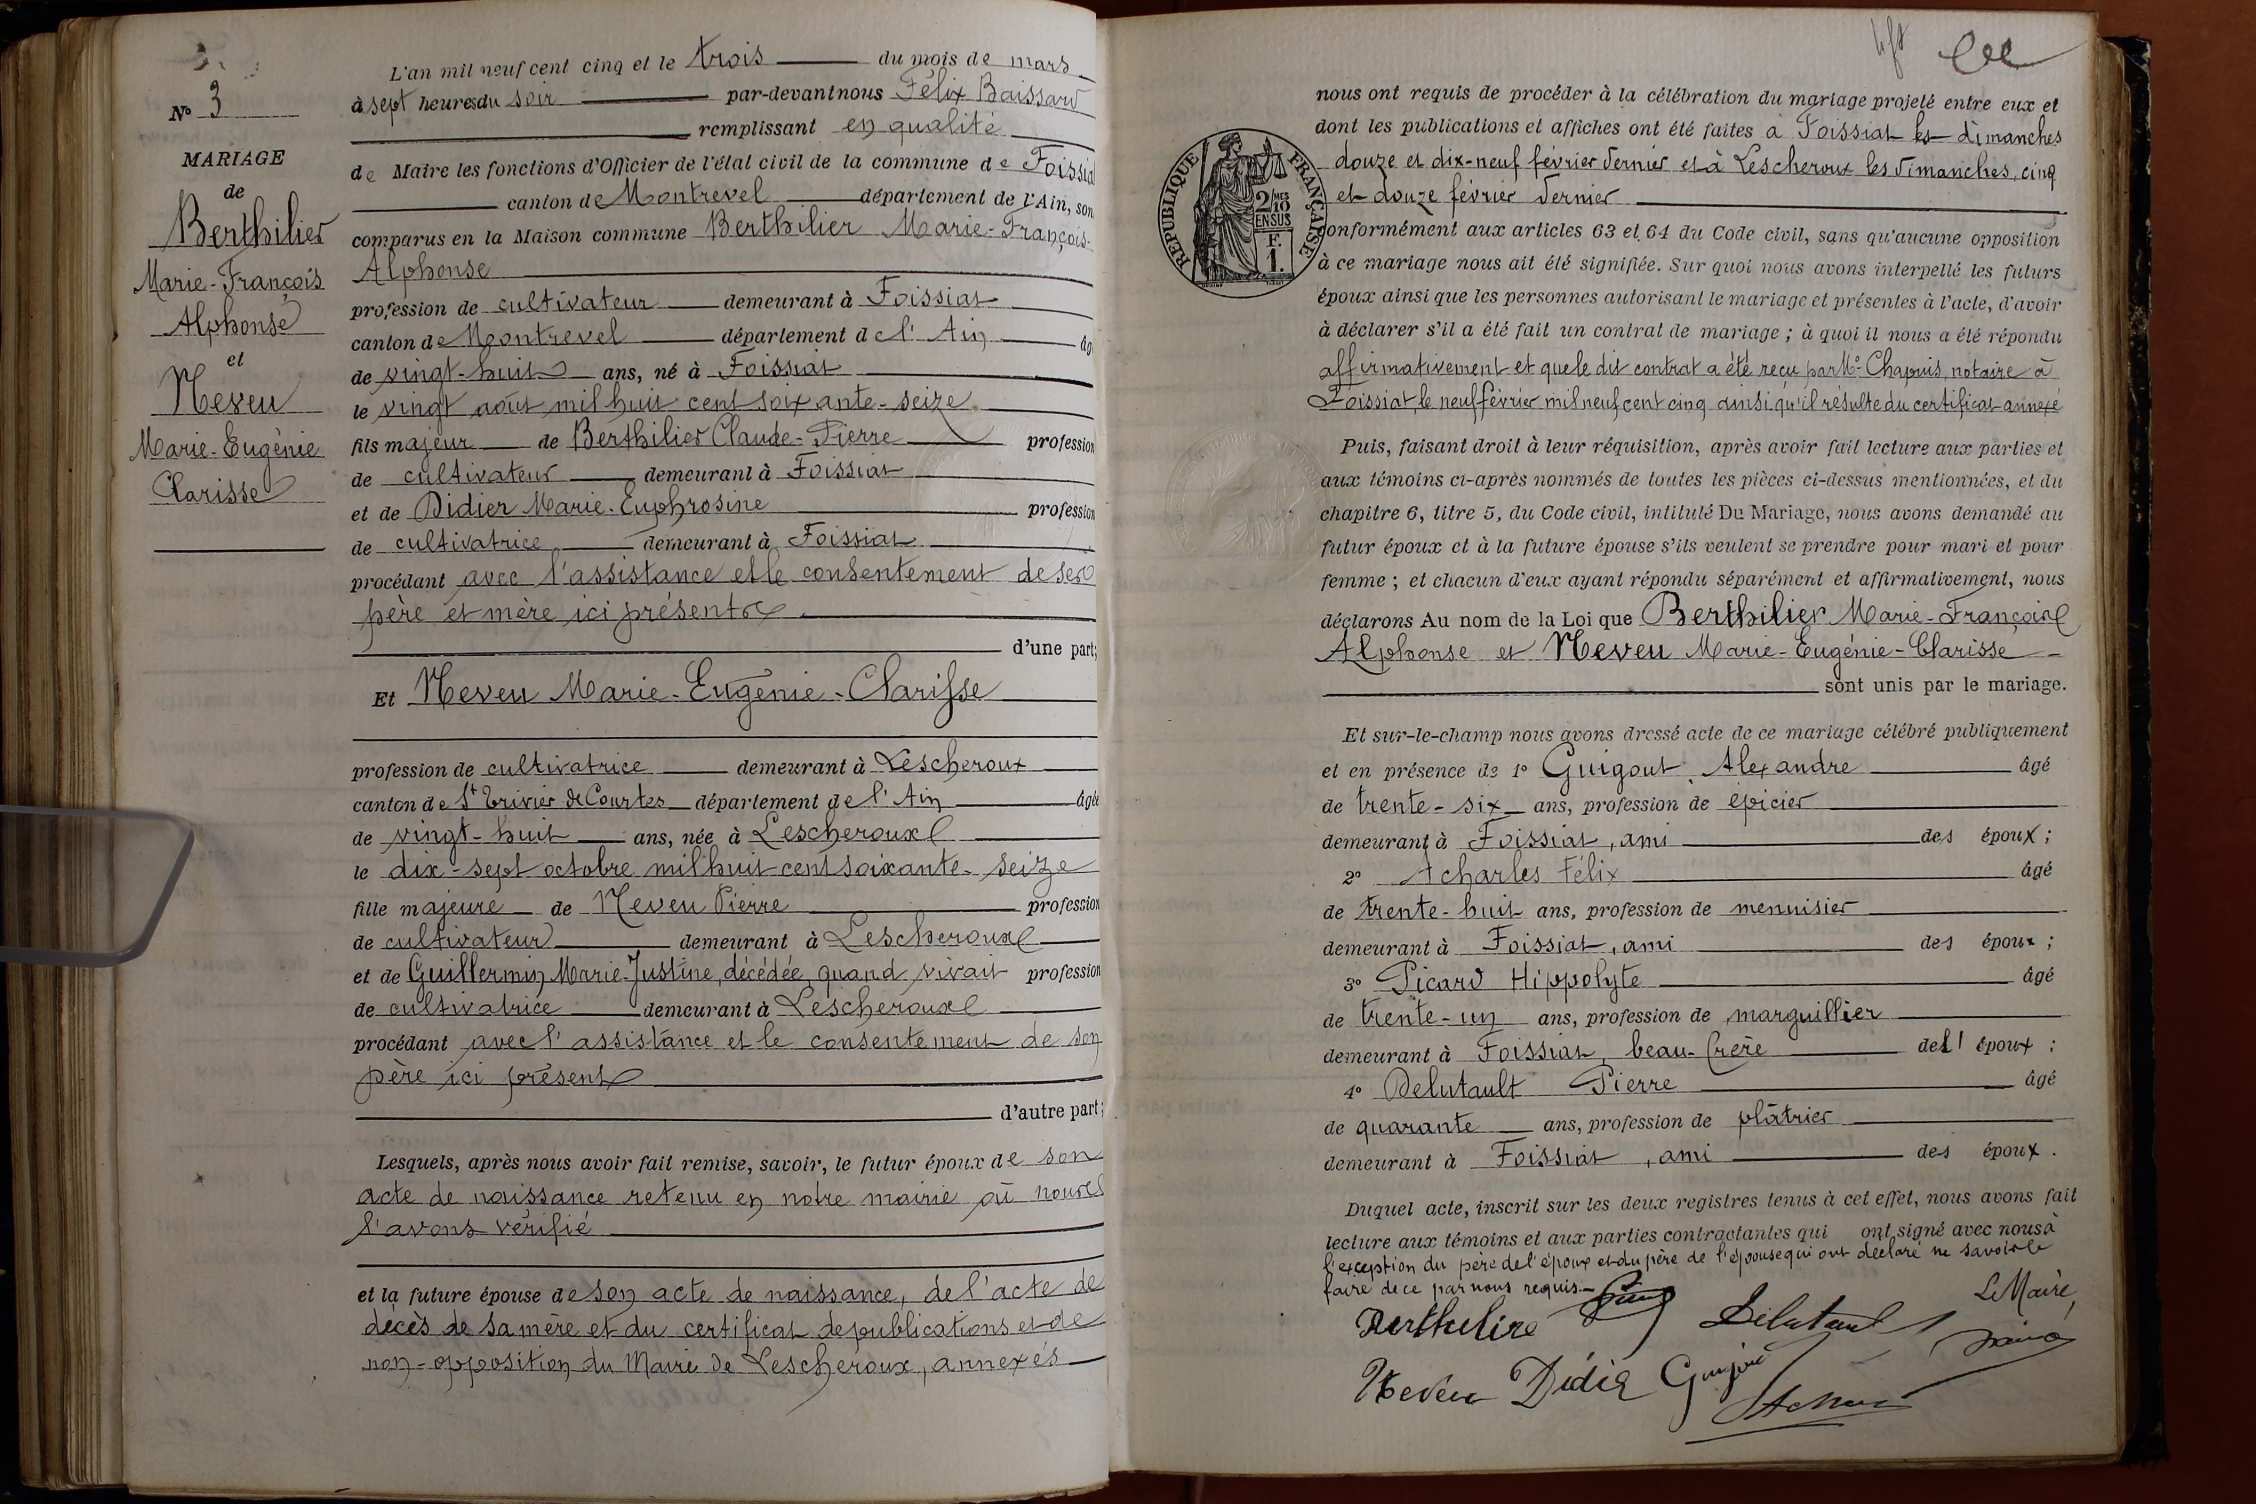 N° 3
MARIAGE
de
Berthilier
Marie-François
Alphonse
et
Neveu
Marie-Eugénie
Clarisse
L'an mil neuf cent cinq et le trois du mois de mars
à sept heures du soir par-devant nous Félix Baissard
remplissant en qualité
de Maire les fonctions d'Officier de l'état civil de la commune de Foissiat
canton de Montrevel département de l'Ain, son
comparus en la Maison commune Berthilier Marie-François-
Alphonse
profession de cultivateur demeurant à Foissiat
canton de Montrevel département de l'Ain âg
de vingt-huit ans, né à Foissiat
le vingt août mil huit cent soixante-seize
fils majeur de Berthilier Claude-Pierre profession
de cultivateur demeurant à Foissiat
et de Didier Marie-Euphrosine profession
de cultivatrice demeurant à Foissiat
procédant avec l'assistance et le consentement de ses
père et mère ici présents
d'une part;
Et Neveu Marie-Eugénie-Clarisse
profession de cultivatrice demeurant à Lescheroux
canton de St Trivier de Courtes département de l'Ain âgée
de vingt-huit ans, née à Lescheroux
le dix-sept octobre mil huit cent soixante-seize
fille majeure de Neveu Pierre profession
de cultivateur demeurant à Lescheroux
et de Guillermin Marie-Justine, décédée, quand vivait profession
de cultivatrice demeurant à Lescheroux
procédant avec l'assistance et le consentement de son
père ici présent
d'autre part;
Lesquels, après nous avoir fait remise, savoir, le futur époux de son
acte de naissance retenu en notre mairie où nous
l'avons vérifié
et la future épouse de son acte de naissance, de l'acte de
décès de sa mère et du certificat de publications et de
non-opposition du Maire de Lescheroux, annexés
nous ont requis de procéder à la célébration du mariage projeté entre eux et
dont les publications et affiches ont été faites à Foissiat les dimanches
douze et dix-neuf février dernier et à Lescheroux les dimanches, cinq
et douze février dernier
RÉPUBLIQUE FRANÇAISE
2/10 MES
EN SUS
F.
1.
conformément aux articles 63 et 64 du Code civil, sans qu'aucune opposition
à ce mariage nous ait été signifiée. Sur quoi nous avons interpellé les futurs
époux ainsi que les personnes autorisant le mariage et présentes à l'acte, d'avoir
à déclarer s'il a été fait un contrat de mariage ; à quoi il nous a été répondu
affirmativement et que le dit contrat a été reçu par Me Chapuis, notaire à
Foissiat, le neuf février mil neuf cent cinq ainsi qu'il résulte du certificat annexé
Puis, faisant droit à leur réquisition, après avoir fait lecture aux parties et
aux témoins ci-après nommés de toutes les pièces ci-dessus mentionnées, et du
chapitre 6, titre 5, du Code civil, intitulé Du Mariage, nous avons demandé au
futur époux et à la future épouse s'ils veulent se prendre pour mari et pour
femme ; et chacun d'eux ayant répondu séparément et affirmativement, nous
déclarons Au nom de la Loi que Berthilier Marie-François
Alphonse et Neveu Marie-Eugénie-Clarisse
sont unis par le mariage.
Et sur-le-champ nous avons dressé acte de ce mariage célébré publiquement
et en présence de 1° Guigout Alexandre âgé
de trente-six ans, profession de épicier
demeurant à Foissiat, ami des époux ;
2° Acharles Félix âgé
de trente-huit ans, profession de menuisier
demeurant à Foissiat, ami des époux ;
3° Picard Hippolyte âgé
de trente-un ans, profession de marguillier
demeurant à Foissiat, beau-frère de l'époux ;
4° Delutault Pierre âgé
de quarante ans, profession de plâtrier
demeurant à Foissiat, ami des époux.
Duquel acte, inscrit sur les deux registres tenus à cet effet, nous avons fait
lecture aux témoins et aux parties contractantes qui ont signé avec nous à
l'exception du père de l'époux et du père de l'épouse qui ont déclaré ne savoir le
faire de ce par nous requis.
Le Maire,
Neveu Didier